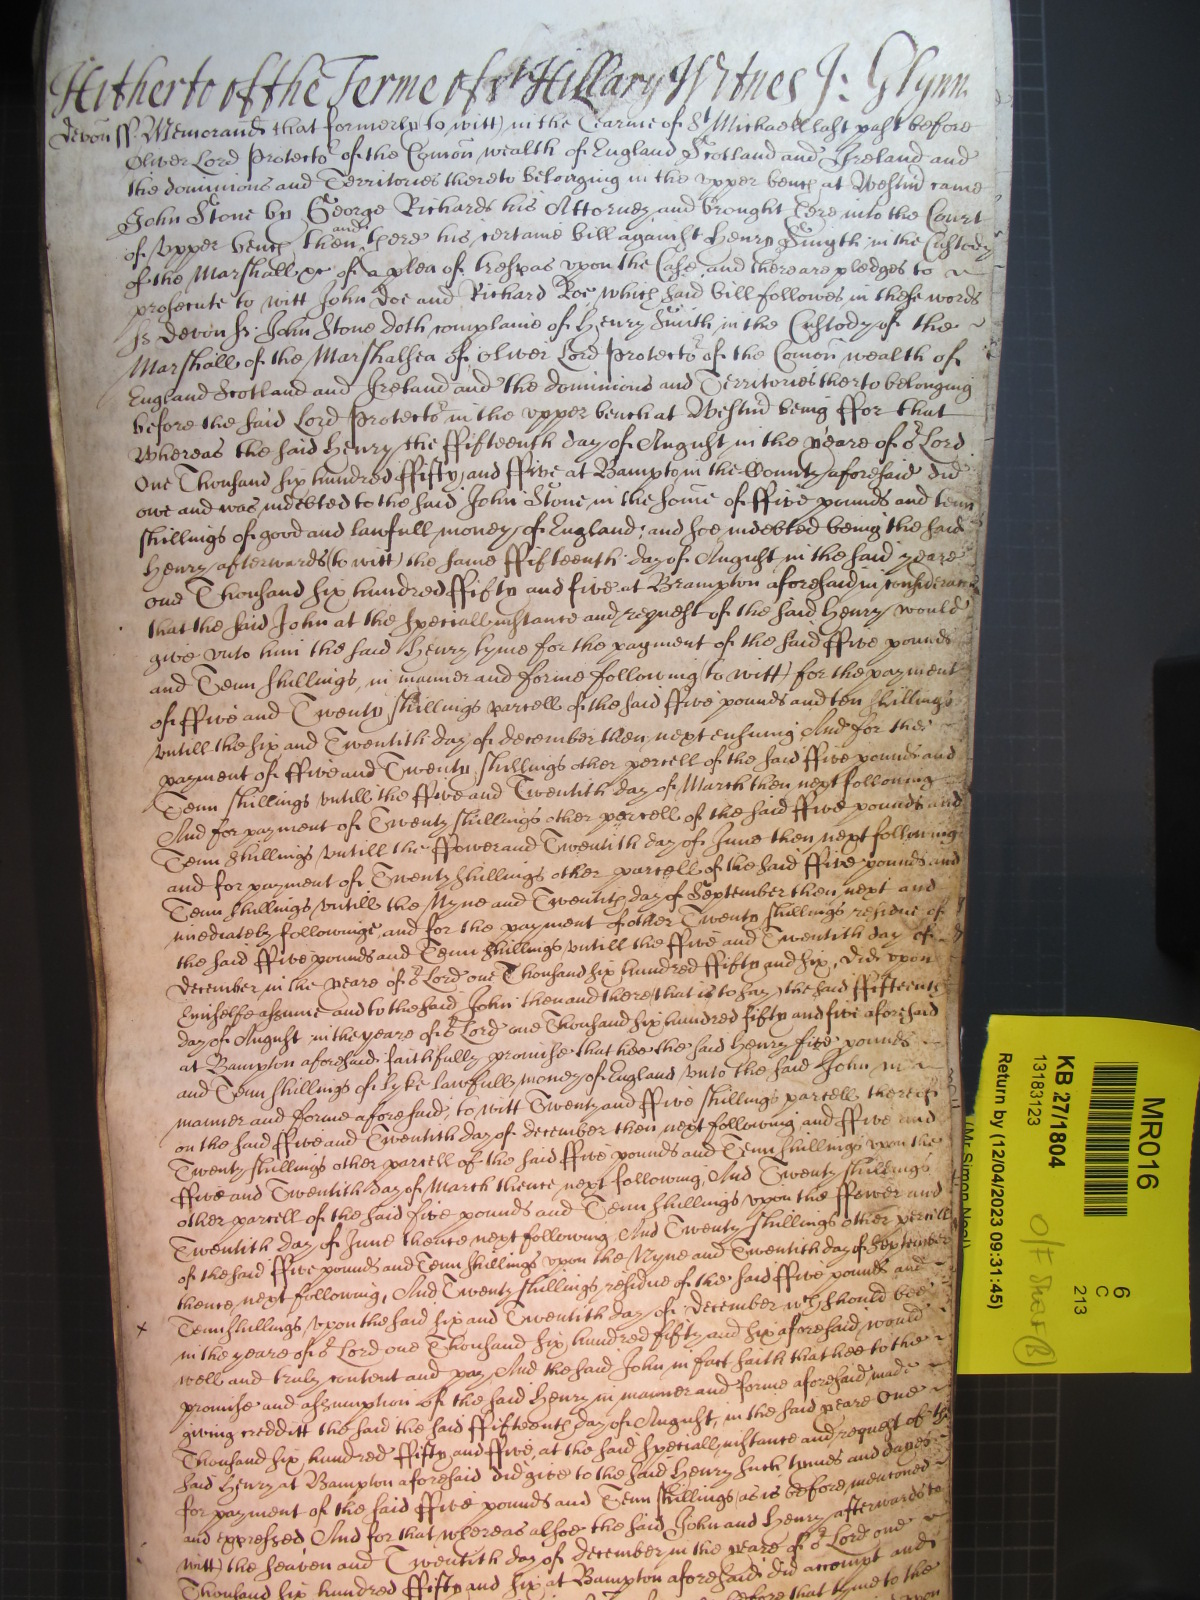 Hitherto of the Terme of st Hillary Witnes J: Glynn
Devon ss Memorand that formerly to witt) in the Tearme of St Michaell last past before
Oliver Lord Protector of the Comon wealth of England Scotland and Ireland and
the dominions and Territories thereto belonging in the upper bench at Westmr came
John Stone by George Richards his Attorney and brought here into the Court
of Upper bench then and there his certaine bill against Henry Smyth in the Custody
of the Marshall &c of a plea of trespas upon the Case and there are pledges to
prosecute to witt John Doe and Richard Roe, which said bill followes in these words
ss Devon ss: John Stone doth complaine of Henry Smith in the Custody of the
Marshall of the Marshalsea of Oliver Lord Protector of the Comon wealth of
England Scotland and Ireland and the dominions and Territories therto belonging
before the said Lord Protector in the upper bench at Westmr being ffor that
Whereas the said Henry the ffifteenth day of August in the yeare of or Lord
One Thousand six hundred ffifty and ffive at Bampton in the County aforesaid did
owe and was indebted to the said John Stone in the some of ffive pounds and tenn
shillings of good and lawfull money of England; and soe indebted being the said
Henry afterwards (to witt) the same ffifteenth day of August in the said yeare
one Thousand six hundred ffifty and five at Brampton aforesaid in consideracon
that the said John at the speciall instance and request of the said Henry would
give unto him the said Henry tyme for the payment of the said ffive pounds
and Tenn shillings, in manner and forme following (to witt) for the payment
of ffive and Twenty shillings parcell of the said ffive pounds and ten shillings
untill the six and Twentith day of december then next ensuing And for the
payment of ffive and Twenty shillings other percell of the said ffive pounds and
Tenn shillings untill the ffive and Twentith day of March then next following
And for payment of Twenty shillings other percell of the said ffive pounds and
Tenn shillings untill the ffower and Twentith day of June then next following
and for payment of Twenty shillings other parcell of the said ffive pounds and
Tenn shillings untill the Nyne and Twentith day of September then next and
imediately followinge and for the payment of other Twenty shillings residue of
the said ffive pounds and Tenn shillings untill the ffive and Twentith day of
december in the yeare of or Lord one Thousand six hundred ffifty and six, did upon
himselfe assume and to the said John then and there (that is to say) the said ffifteenth
day of August in the yeare of or Lord one Thousand six hundred fifty and five aforesaid
at Bampton aforesaid faithfully promise that hee the said Henry five pounds
and Tenn shillings of lyke lawfull money of England unto the said John in
manner and forme aforesaid, to witt Twenty and ffive shillings parcell thereof
on the said ffive and Twentith day of december then next following and ffive and
Twenty shillings other parcell of the said ffive pounds and Tenn shillings upon the
ffive and Twentith day of March thence next following, And Twenty shillings
other parcell of the said five pounds and Tenn shillings upon the ffower and
Twentith day of June thence next following And Twenty shillings other percell
of the said ffive pounds and Tenn shillings upon the Nyne and Twentith day of September
thence next following, And Twenty shillings residue of the said ffive pounds and
Tenn shillings upon the said six and Twentith day of december wch should bee
in the yeare of or Lord one Thousand six hundred fifty and six aforesaid would
well and truly content and pay And the said John in fact saith that hee to the
promise and assumption of the said Henry in manner and forme aforesaid made
giving creditt the said the said ffifteenth day of August, in the said yeare One
Thousand six hundred ffifty and ffive, at the said speciall instance and request of the
said Henry at Bampton aforesaid did give to the said Henry such tymes and dayes
for payment of the said ffive pounds and Tenn shillings as is before mentoned
and expressed And for that whereas alsoe the said John and Henry afterwards to
witt) the seaven and Twentith day of december in the yeare of or Lord one
Thousand six hundred ffifty and six at Bampton aforesaid did accompt and
before that tyme to the
MR016
6
C
213
KB 27/1804
13183123
Return by (12/04/2023 09:31:45)
(Mr Simon Neal)
O/F Sheet (B)